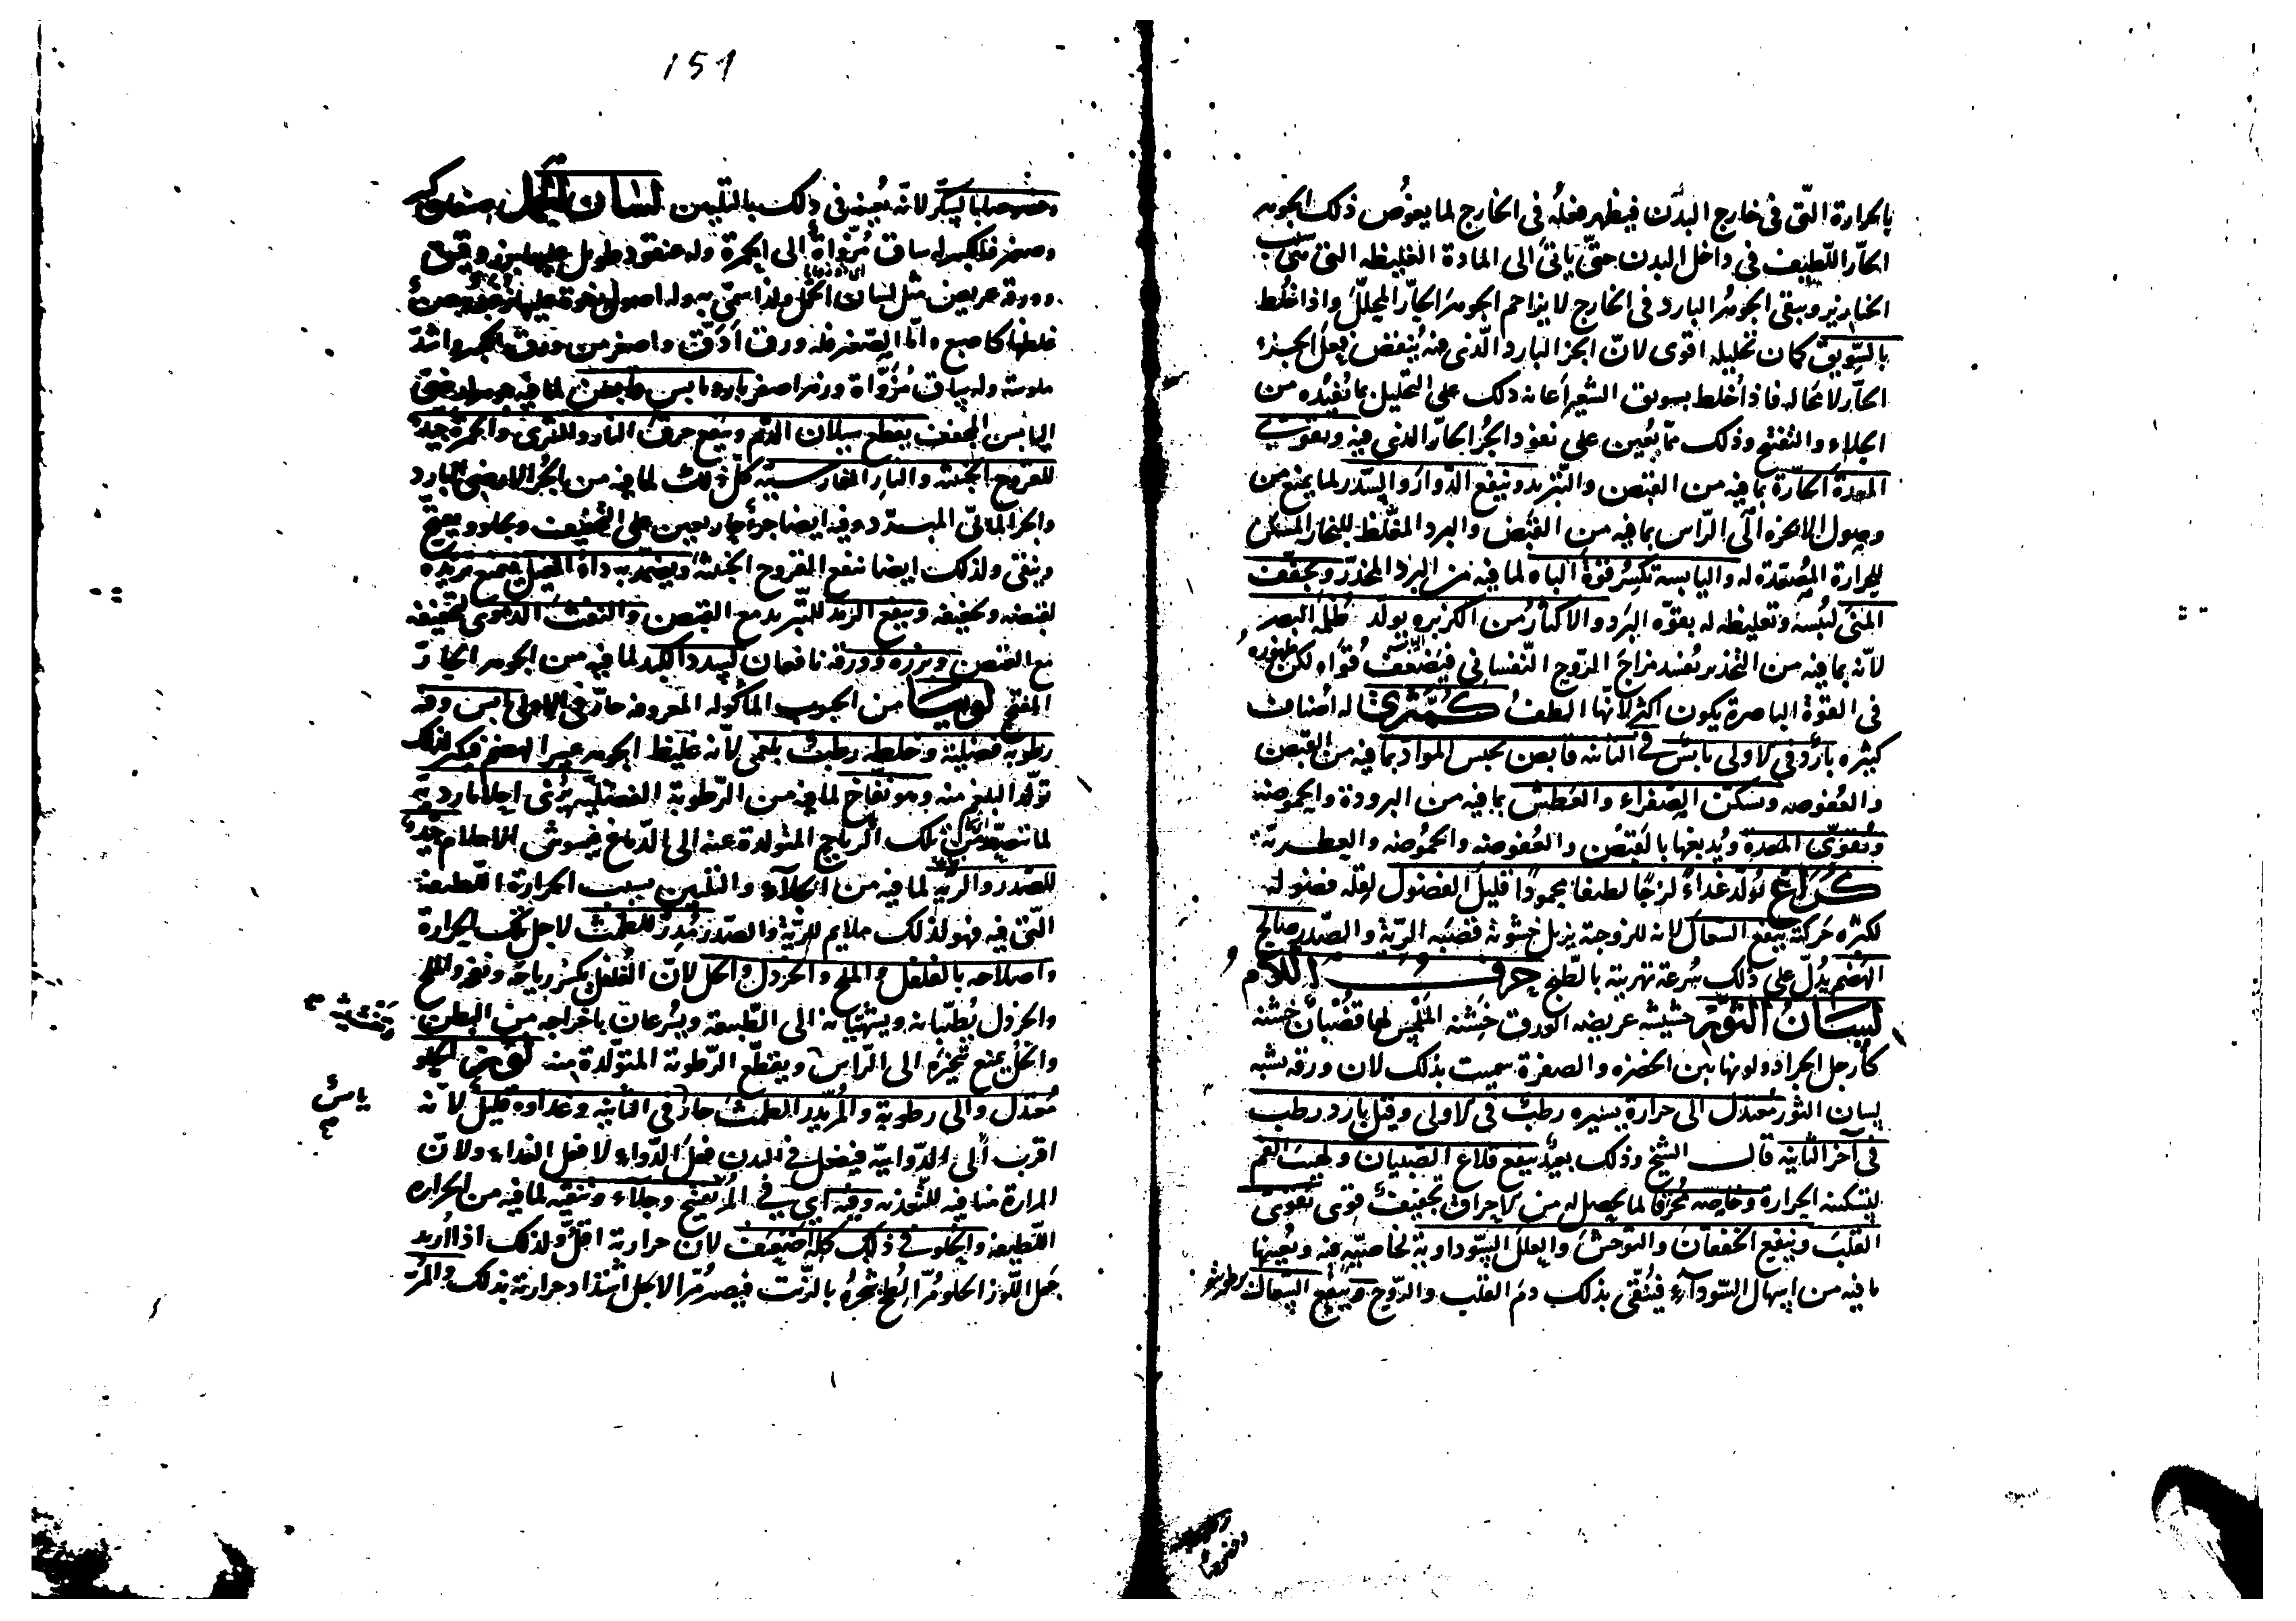 بالحرارة التى فى خارج البدن فيظهر فعله فى الخارج لما يغوص ذلك الجوهر
الحار اللطيف فى داخل البدن حتى ياتى الى المادة الغليظه التى هى سبب
الخنازير ويبقى الجوهر البارد فى الخارج لا يزاحم الجوهر الحار المحلل واذا خلط
بالسويق كان تحليله اقوى لان الجزء البارد الذى فيه ينفض بفعل الجزء
الحار لا محاله فاذا خلط بسويق الشعير اعانه ذلك على التحليل بما تفيده من
الجلاء والتفتح وذلك مما يعين على نفوذ الجزء الحار الذى فيه ويقوى
المعدة الحارة بما فيه من القبض والتبريد وينفع الدوار والسدر لما يمنع من
وصول الابخره الى الراس بما فيه من القبض والبرد المغلظ للبخار المسكن
للحرارة المصعدة له واليابسة تكسر قوة الباه لما فيه من البرد المخدر وتجفف
المنى ليبسه وتغليظه له بقوه البرد والاكثار من الكزبره يولد ظلمة البصر
لانه بما فيه من التخدير يفسد مزاج الروح النفسانى فيضعف قواه لكن ظهوره
فى القوة الباصرة يكون اكثر لانها الطف كمثرى له اصناف
كثيره بارد فى الاولى يابس فى الثانيه قابض يحبس المواد بما فيه من القبض
والعفوصه ويسكن الصفراء والعطش بما فيه من البرودة والحموضه
ويقوى المعدة ويدبغها بالقبض والعفوصه والحموضه والعطرية
كراع يولد غذاء لزجا لطيفا محمودا قليل الفضول لقله فضوله
لكثره حركته ينفع السعال لانه للزوجته يزيل خشونة قصبه الرية والصدر صالح
الهضم يدل على ذلك سرعة تهريته بالطبخ حرف اللام
لسان الثور حشيشه عريضه الورق خشنه الملمس لها قضبان خشنه
كأرجل الجراد ولونها بين الخضره والصفرة سميت بذلك لان ورقه يشبه
لسان الثور معتدل الى حرارة يسيره رطب فى الاولى وقيل بارد رطب
فى آخر الثانيه قال الشيخ وذلك بعيد ينفع قلاع الصبيان ولهيب الفم
لتسكينه الحرارة وخاصه محرقا لما يحصل له من الاحراق تجفيف قوى يقوى
القلب وينفع الخفقان والتوحش والعلل السوداوية لخاصيه فيه ويعينها
ما فيه من اسهال السوداء فينقى بذلك دم القلب والروح وينفع السعال لرطوبته
151
وخصوصا بالسكر لانه يعينه فى ذلك بالتليين لسان الحمل صنفان كبير
وصغير فالكبير له ساق مزواة الى الحمرة وله عنقود طويل عليه بزر دقيق
وورقه عريض مثل لسان الحمل ولذا سمى به وله اصول رخوة عليها زغب بيض
غلظها كاصبع واما الصغير فله ورق ادق واصغر من ورق الكبير واشد
ملوسة وله ساق مزواة وزهر اصفر بارد يابس قابض لما فيه جوهر ارضى
اليابس المجفف يقطع سيلان الدم وينفع حرق النار والشرى والحمرة جيد
للقروح الخبيثه والنار الفارسية كل ذلك لما فيه من الجزء الارضى البارد
والجزء المائى المبرد وفيه ايضا جزء حار يعين على التجفيف ويجلو ويعمق
وينقى ولذلك ايضا ينفع القروح الخبيثه ويضمد به داء الفيل فيمنع تزيده
لقبضه وتجفيفه وينفع الرمد للتبريد مع القبض والنفث الدموى لتجفيفه
مع القبض وبزره وورقه نافعان لسدد الكبد لما فيه من الجوهر الحار
المفتح لوبيا من الحبوب الماكوله المعروفه حار فى الاولى يابس وفيه
رطوبة فضلية وخلطه رطب بلغمى لانه غليظ الجوهر عسر الهضم فيكثر لذلك
تولد البلغم منه وهو نفاخ لما فيه من الرطوبة الفضليه يرى احلاما ردية
لما تتصعد من تلك الرياح المتولدة عنه الى الدماغ فيشوش الاحلام جيد
للصدر والرية لما فيه من الجلاء والتليين بسبب الحرارة اللطيفة
التى فيه فهو لذلك ملايم للرية والصدر مدر للطمث لاجل تلك الحرارة
واصلاحه بالفلفل والملح والخردل والخل لان الفلفل يكسر رياحه ونفخه والملح
والخردل يطيبانه ويشهيانه الى الطبيعة ويسرعان باخراجه من البطن
والخل يمنع تبخره الى الراس ويقطع الرطوبة المتولدة منه لوز الحلو
يابس
معتدل والى رطوبة والمر يدر الطمث حار فى الثانيه وغداوه قليل لانه
اقرب الى الدوائية فيفعل فى البدن فعل الدواء لا فعل الغداء ولان
المرارة منافيه للتغذيه وفيه اى فى المر تفتيح وجلاء وتنقيه لما فيه من الحراره
اللطيفه والحلو فى ذلك كله اضعف لان حرارته اقل ولذلك اذا اريد
جعل اللوز الحلو مرا لطخ شجره بالزيت فيصير مرا لاجل اشتداد حرارته بذلك والمر